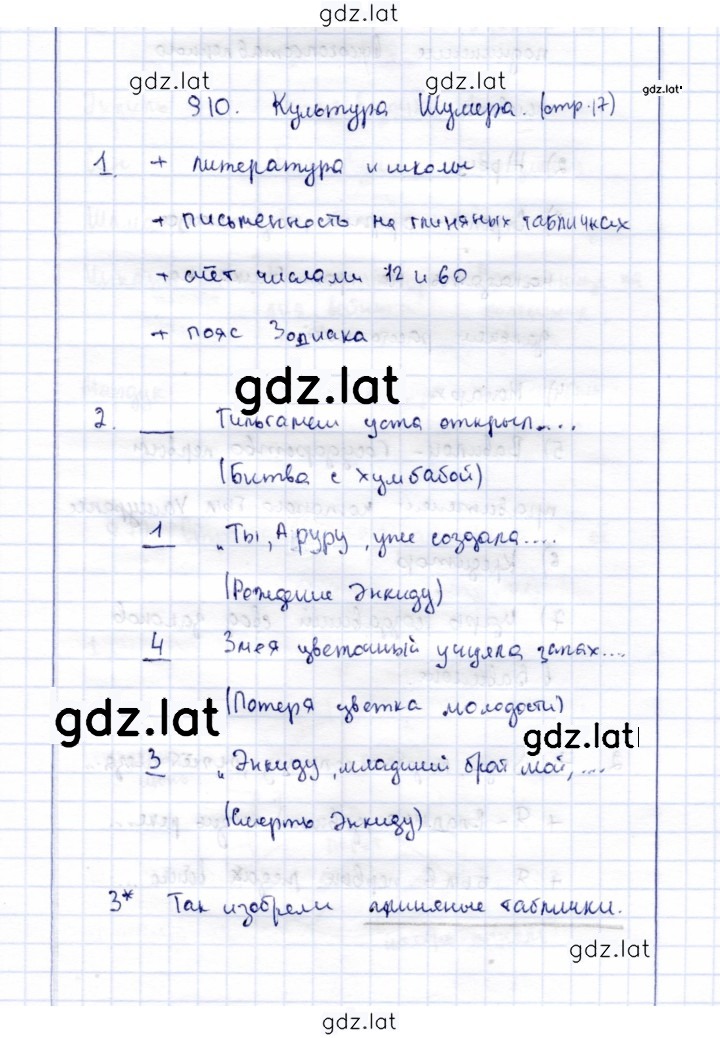 gdz.lat
gdz.lat gdz.lat gdz.lat
§10. Культура Шумера. (стр.17)
1. + литература и школы
+ письменность на глиняных табличках
+ счёт числами 12 и 60
+ пояс Зодиака
gdz.lat
2. __ Гильгамеш уста открыл....
(Битва с Хумбабой)
1 "Ты, Аруру, уже создала....
(Рождение Энкиду)
4 Змея цветочный учуяла запах....
(Потеря цветка молодости)
gdz.lat
gdz.lat
3 "Энкиду, младший брат мой, ....
(Смерть Энкиду)
3* Так изобрели глиняные таблички.
gdz.lat
gdz.lat